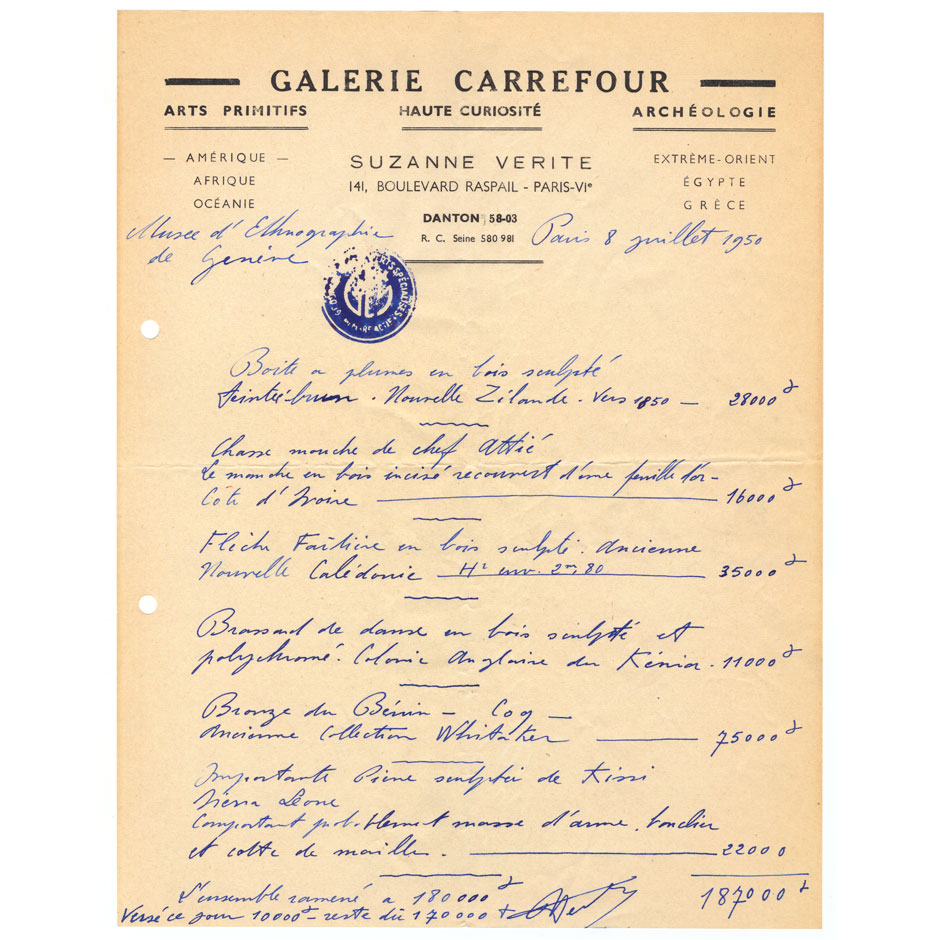 GALERIE CARREFOUR
ARTS PRIMITIFS HAUTE CURIOSITÉ ARCHÉOLOGIE
— AMÉRIQUE —
AFRIQUE
OCÉANIE
SUZANNE VERITE
141, BOULEVARD RASPAIL - PARIS-VIe
DANTON 58-03
R. C. Seine 580 981
EXTRÊME-ORIENT
ÉGYPTE
GRÈCE
Musee d'Ethnographie
de Genève
Paris 8 juillet 1950
Boite a plumes en bois sculpté
teintée brun. Nouvelle Zélande. Vers 1850 — 28000
Chasse mouche de chef Attié
Le manche en bois incisé recouvert d'une feuille d'or -
Côte d'Ivoire — 16000
Flèche Faîtière en bois sculpté. Ancienne
Nouvelle Calédonie Hr env. 2m,80 35000
Brassard de danse en bois sculpté et
polychromé. Colonie Anglaise du Kénia. 11000
Bronze du Bénin — Coq —
Ancienne Collection Whitaker — 75000
Importante Pierre sculptée de Kissi
Sierra Léone
Comportant masse d'arme, bouclier
et cotte de maille. — 22000
187000
L'ensemble ramené a 180000
Versé ce jour 10000 - reste dû 170000